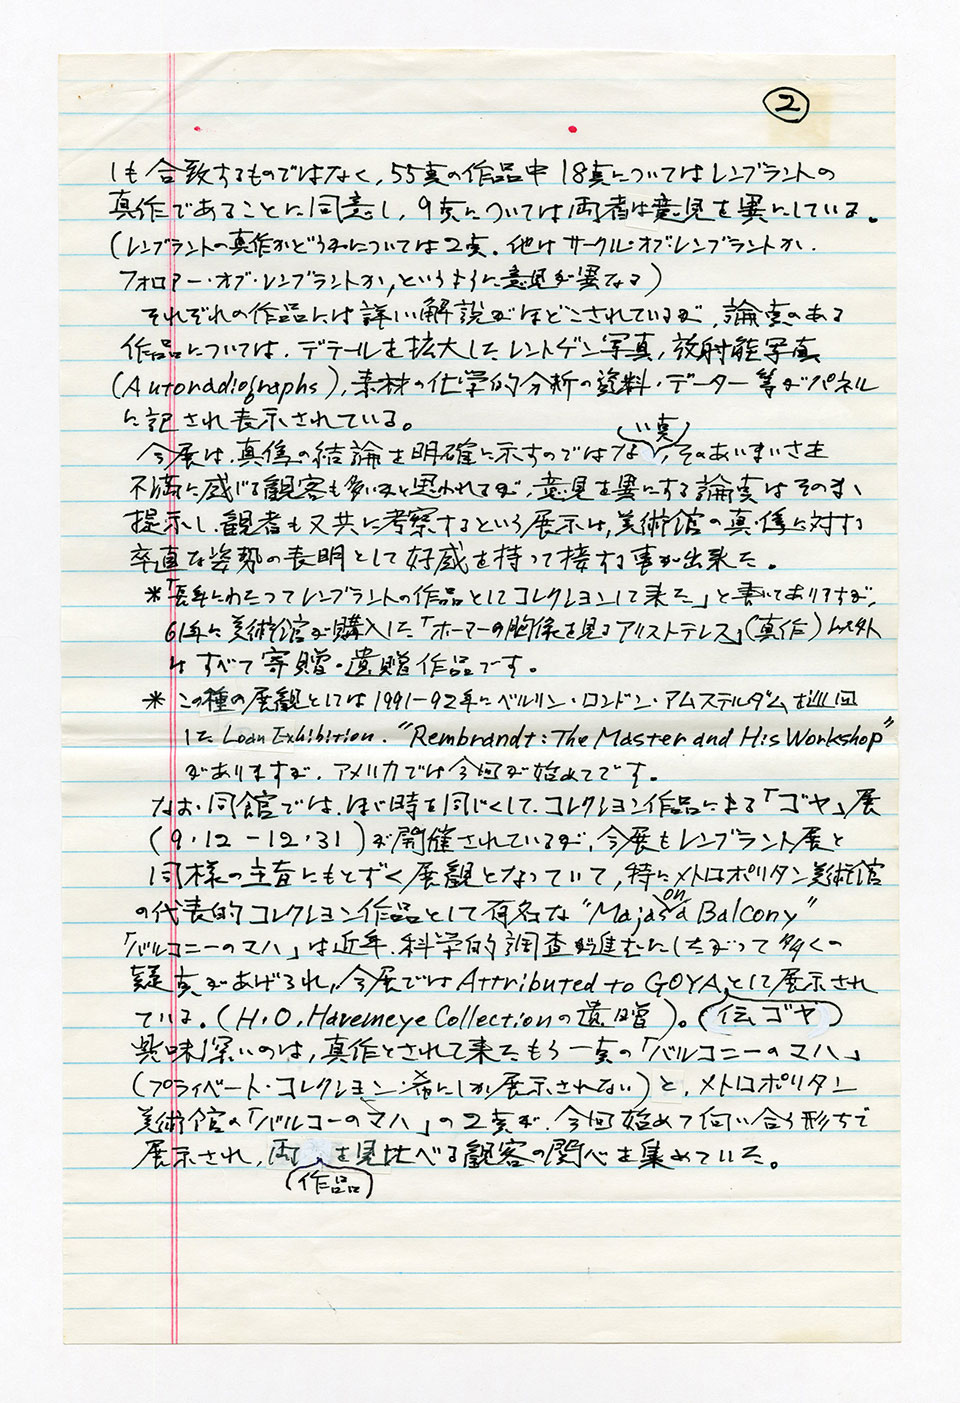 ②
しも合致するものではなく、55点の作品中18点についてはレンブラントの
真作であることに同意し、9点については両者は意見を異にしている。
(レンブラントの真作かどうかについては2点. 他はサークル・オブ・レンブラントか.
フォロアー・オブ・レンブラントか,というように意見が異なる)
それぞれの作品には詳しい解説がほどこされているが、論点のある
作品については. デテールを拡大したレントゲン写真, 放射能写真
(Autoradiographs), 素材の化学的分析の資料・データー等がパネル
に記され表示されている。
(い点)
今展は、真偽の結論を明確に示すのではな、そのあいまいさを
不満に感じる観客も多いかと思われるが、意見を異にする論点はそのまゝ
提示し、観者も又共に考察するという展示は, 美術館の真偽に対する
卒直な姿勢の表明として好感を持って接する事が出来た。
*「長年にわたってレンブラントの作品としてコレクションして来た」と書いてありますが、
61年に美術館が購入した「ホーマーの胸像を見るアリストテレス」(真作)以外
は すべて寄贈・遺贈作品です。
* この種の展観としては1991-92年にベルリン・ロンドン・アムステルダムを巡回
した Loan Exhibition. "Rembrandt: The Master and His Workshop"
がありますが. アメリカでは今回が始めてです。
なお、同館では、ほゞ時を同じくして、コレクション作品による「ゴヤ」展
(9・12-12・31)が開催されているが、今展もレンブラント展と
同様の主旨にもとずく展観となっていて, 特にメトロポリタン美術館
の代表的コレクション作品として有名な "Majas on a Balcony"
「バルコニーのマハ」は近年、科学的調査が進むにしたがって多くの
疑点があげられ, 今展ではAttributed to GOYAとして展示され
ている。(H.O. Havemeye Collectionの遺贈)。(伝ゴヤ)
興味深いのは, 真作とされて来たもう一点の「バルコニーのマハ」
(プライベート・コレクション・希にしか展示されない)と、メトロポリタン
美術館の「バルコーのマハ」の2点が、今回始めて向い合う形ちで
展示され、両を見比べる観客の関心を集めていた。
(作品)